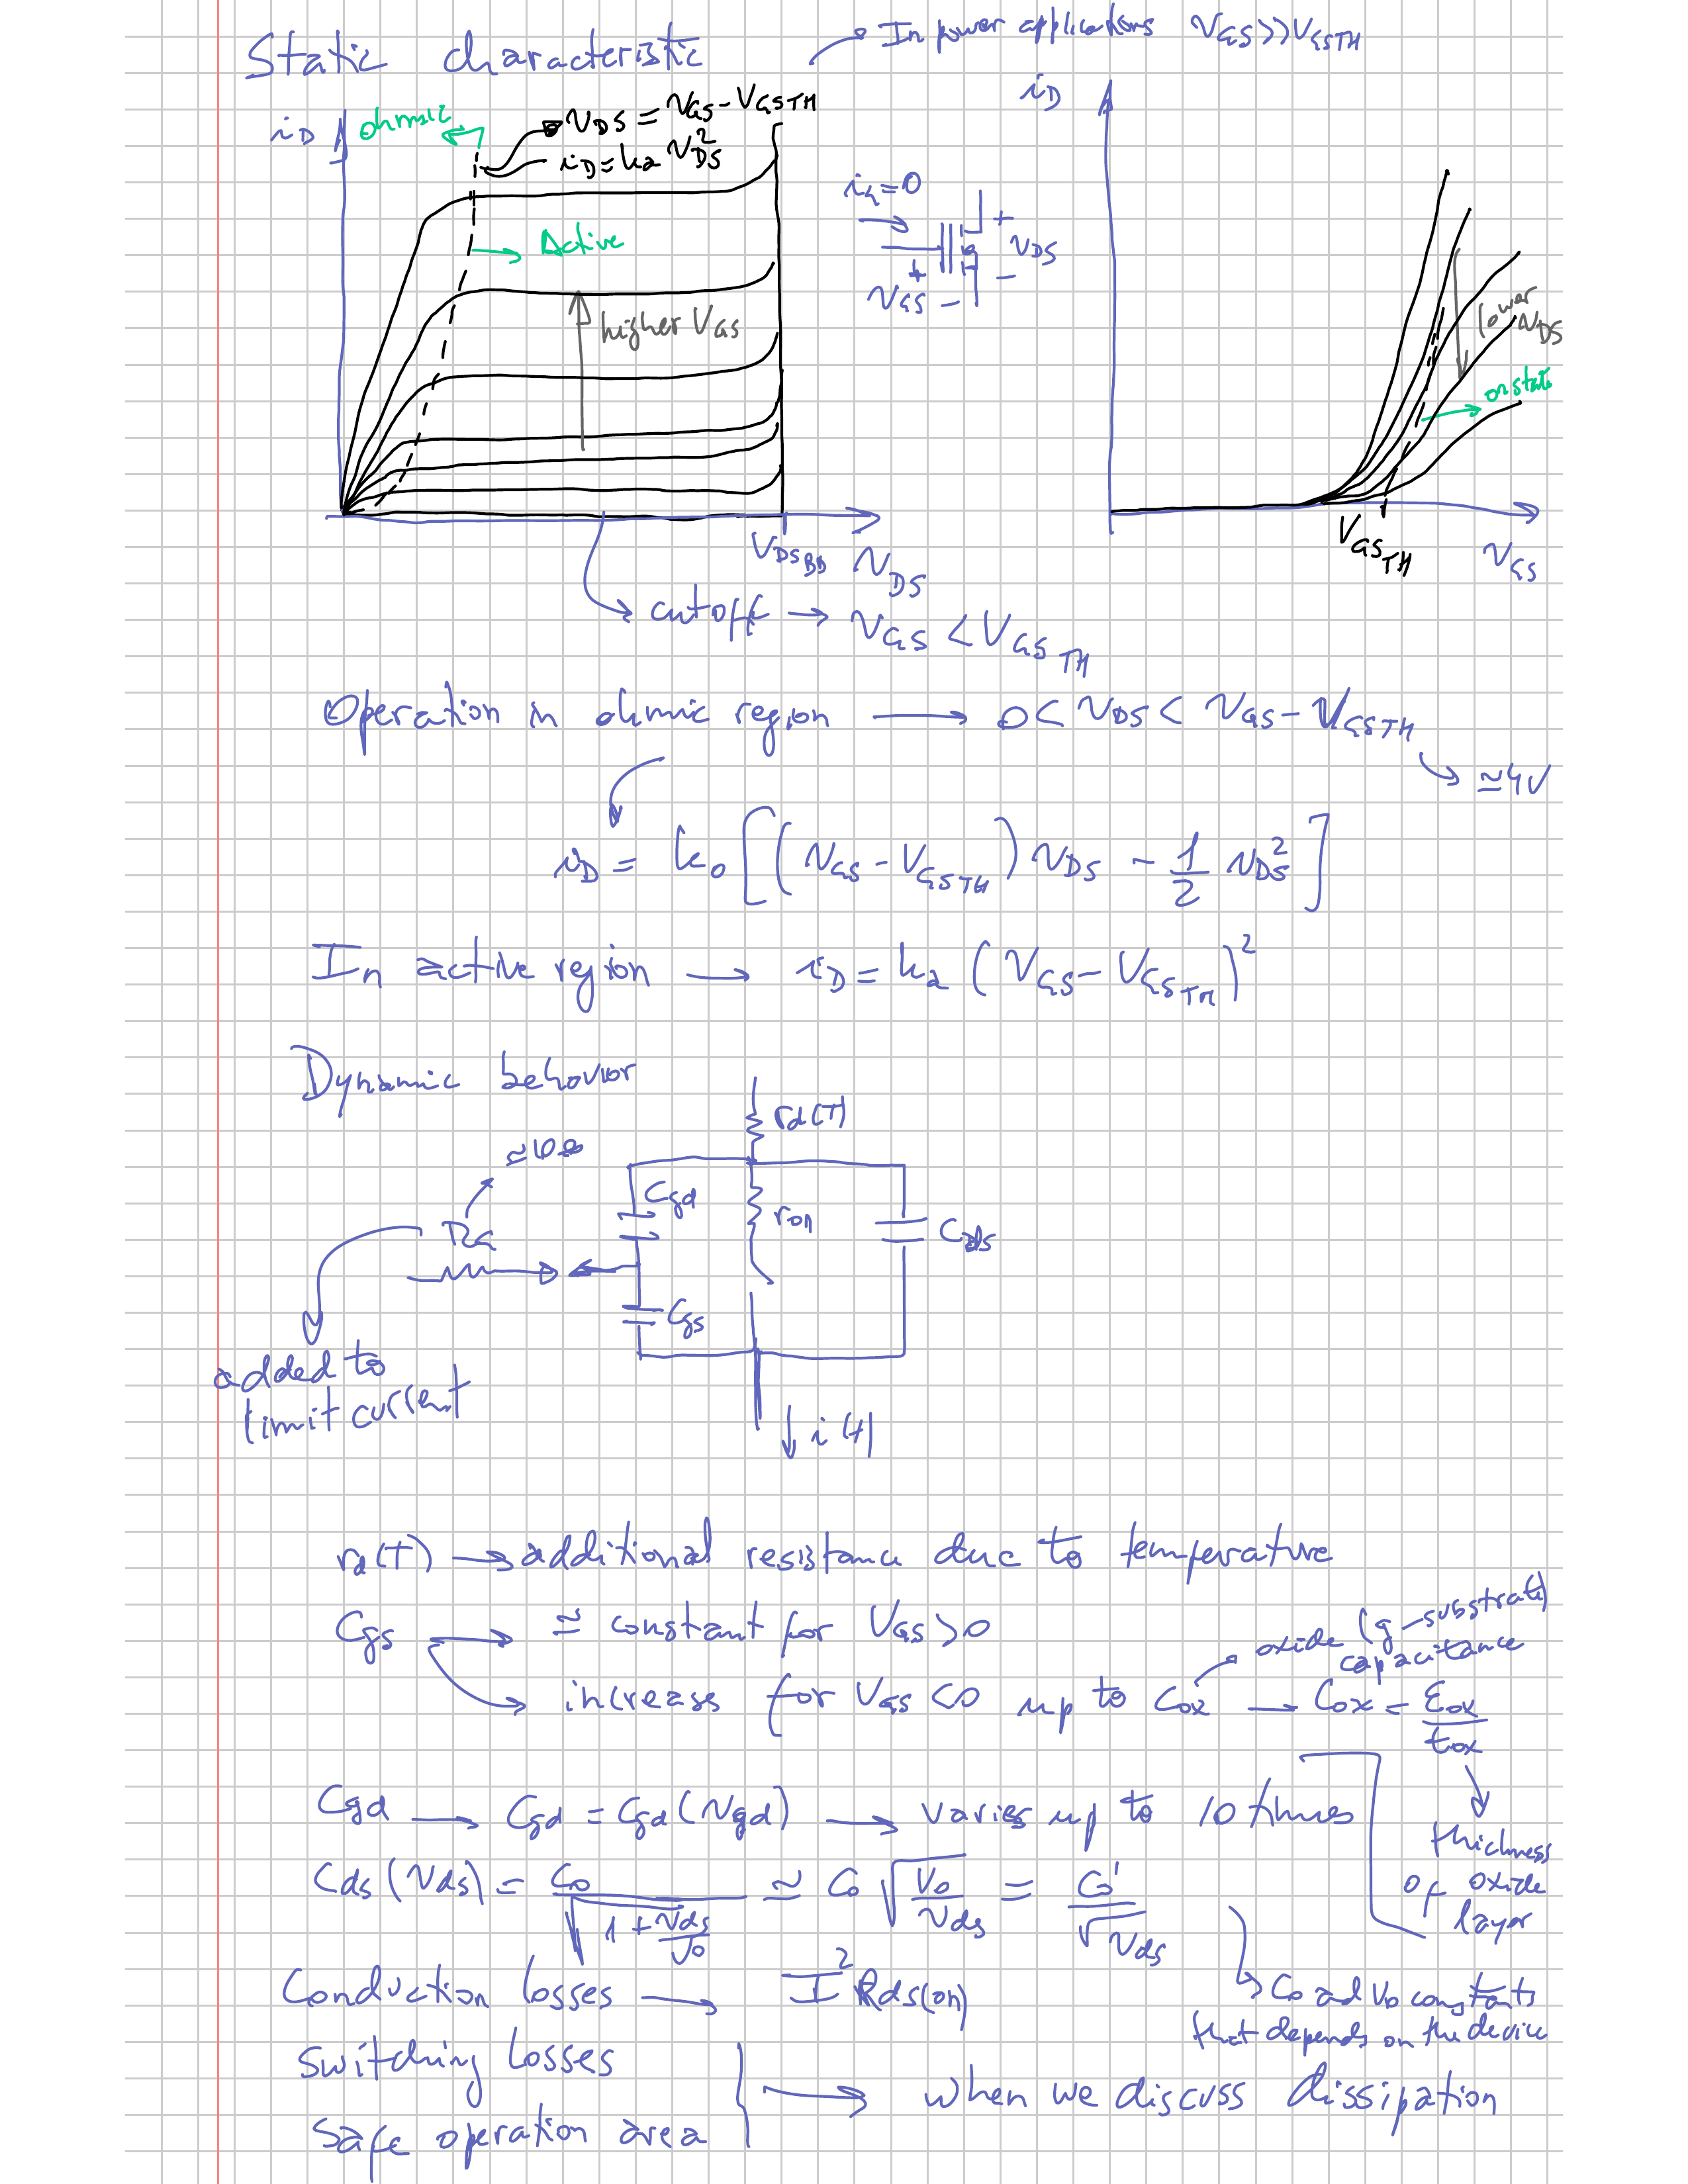 Static characteristic
In power applications v_GS >> V_GS_TH
i_D
ohmic
v_DS = v_GS - V_GS_TH
i_D = k_a v_DS^2
Active
higher V_GS
V_DS_BD
v_DS
cutoff → v_GS < V_GS_TH
i_G = 0
+
v_DS
-
+
v_GS -
i_D
lower v_DS
on state
V_GS_TH
v_GS
Operation in ohmic region → 0 < v_DS < v_GS - V_GS_TH
≃ 4V
i_D = k_o [(v_GS - V_GS_TH) v_DS - 1/2 v_DS^2]
In active region → i_D = k_a (V_GS - V_GS_TH)^2
Dynamic behavior
r_d(T)
C_gd
r_on
C_ds
R_G
C_gs
added to
limit current
i(t)
r_d(T) → additional resistance due to temperature
C_gs → ≃ constant for V_GS > 0
→ increase for V_GS < 0 up to C_ox → C_ox = ε_ox / t_ox
oxide (g-substrate)
capacitance
thickness
of oxide
layer
C_gd → C_gd = C_gd(v_gd) → varies up to 10 times
C_ds(v_ds) = C_0 / √(1 + v_ds/V_0) ≃ C_0 √(V_0/v_ds) = C_0' / √v_ds
C_0 and V_0 constants
that depends on the device
Conduction losses → I^2 R_ds(on)
Switching losses
Safe operation area
→ when we discuss dissipation